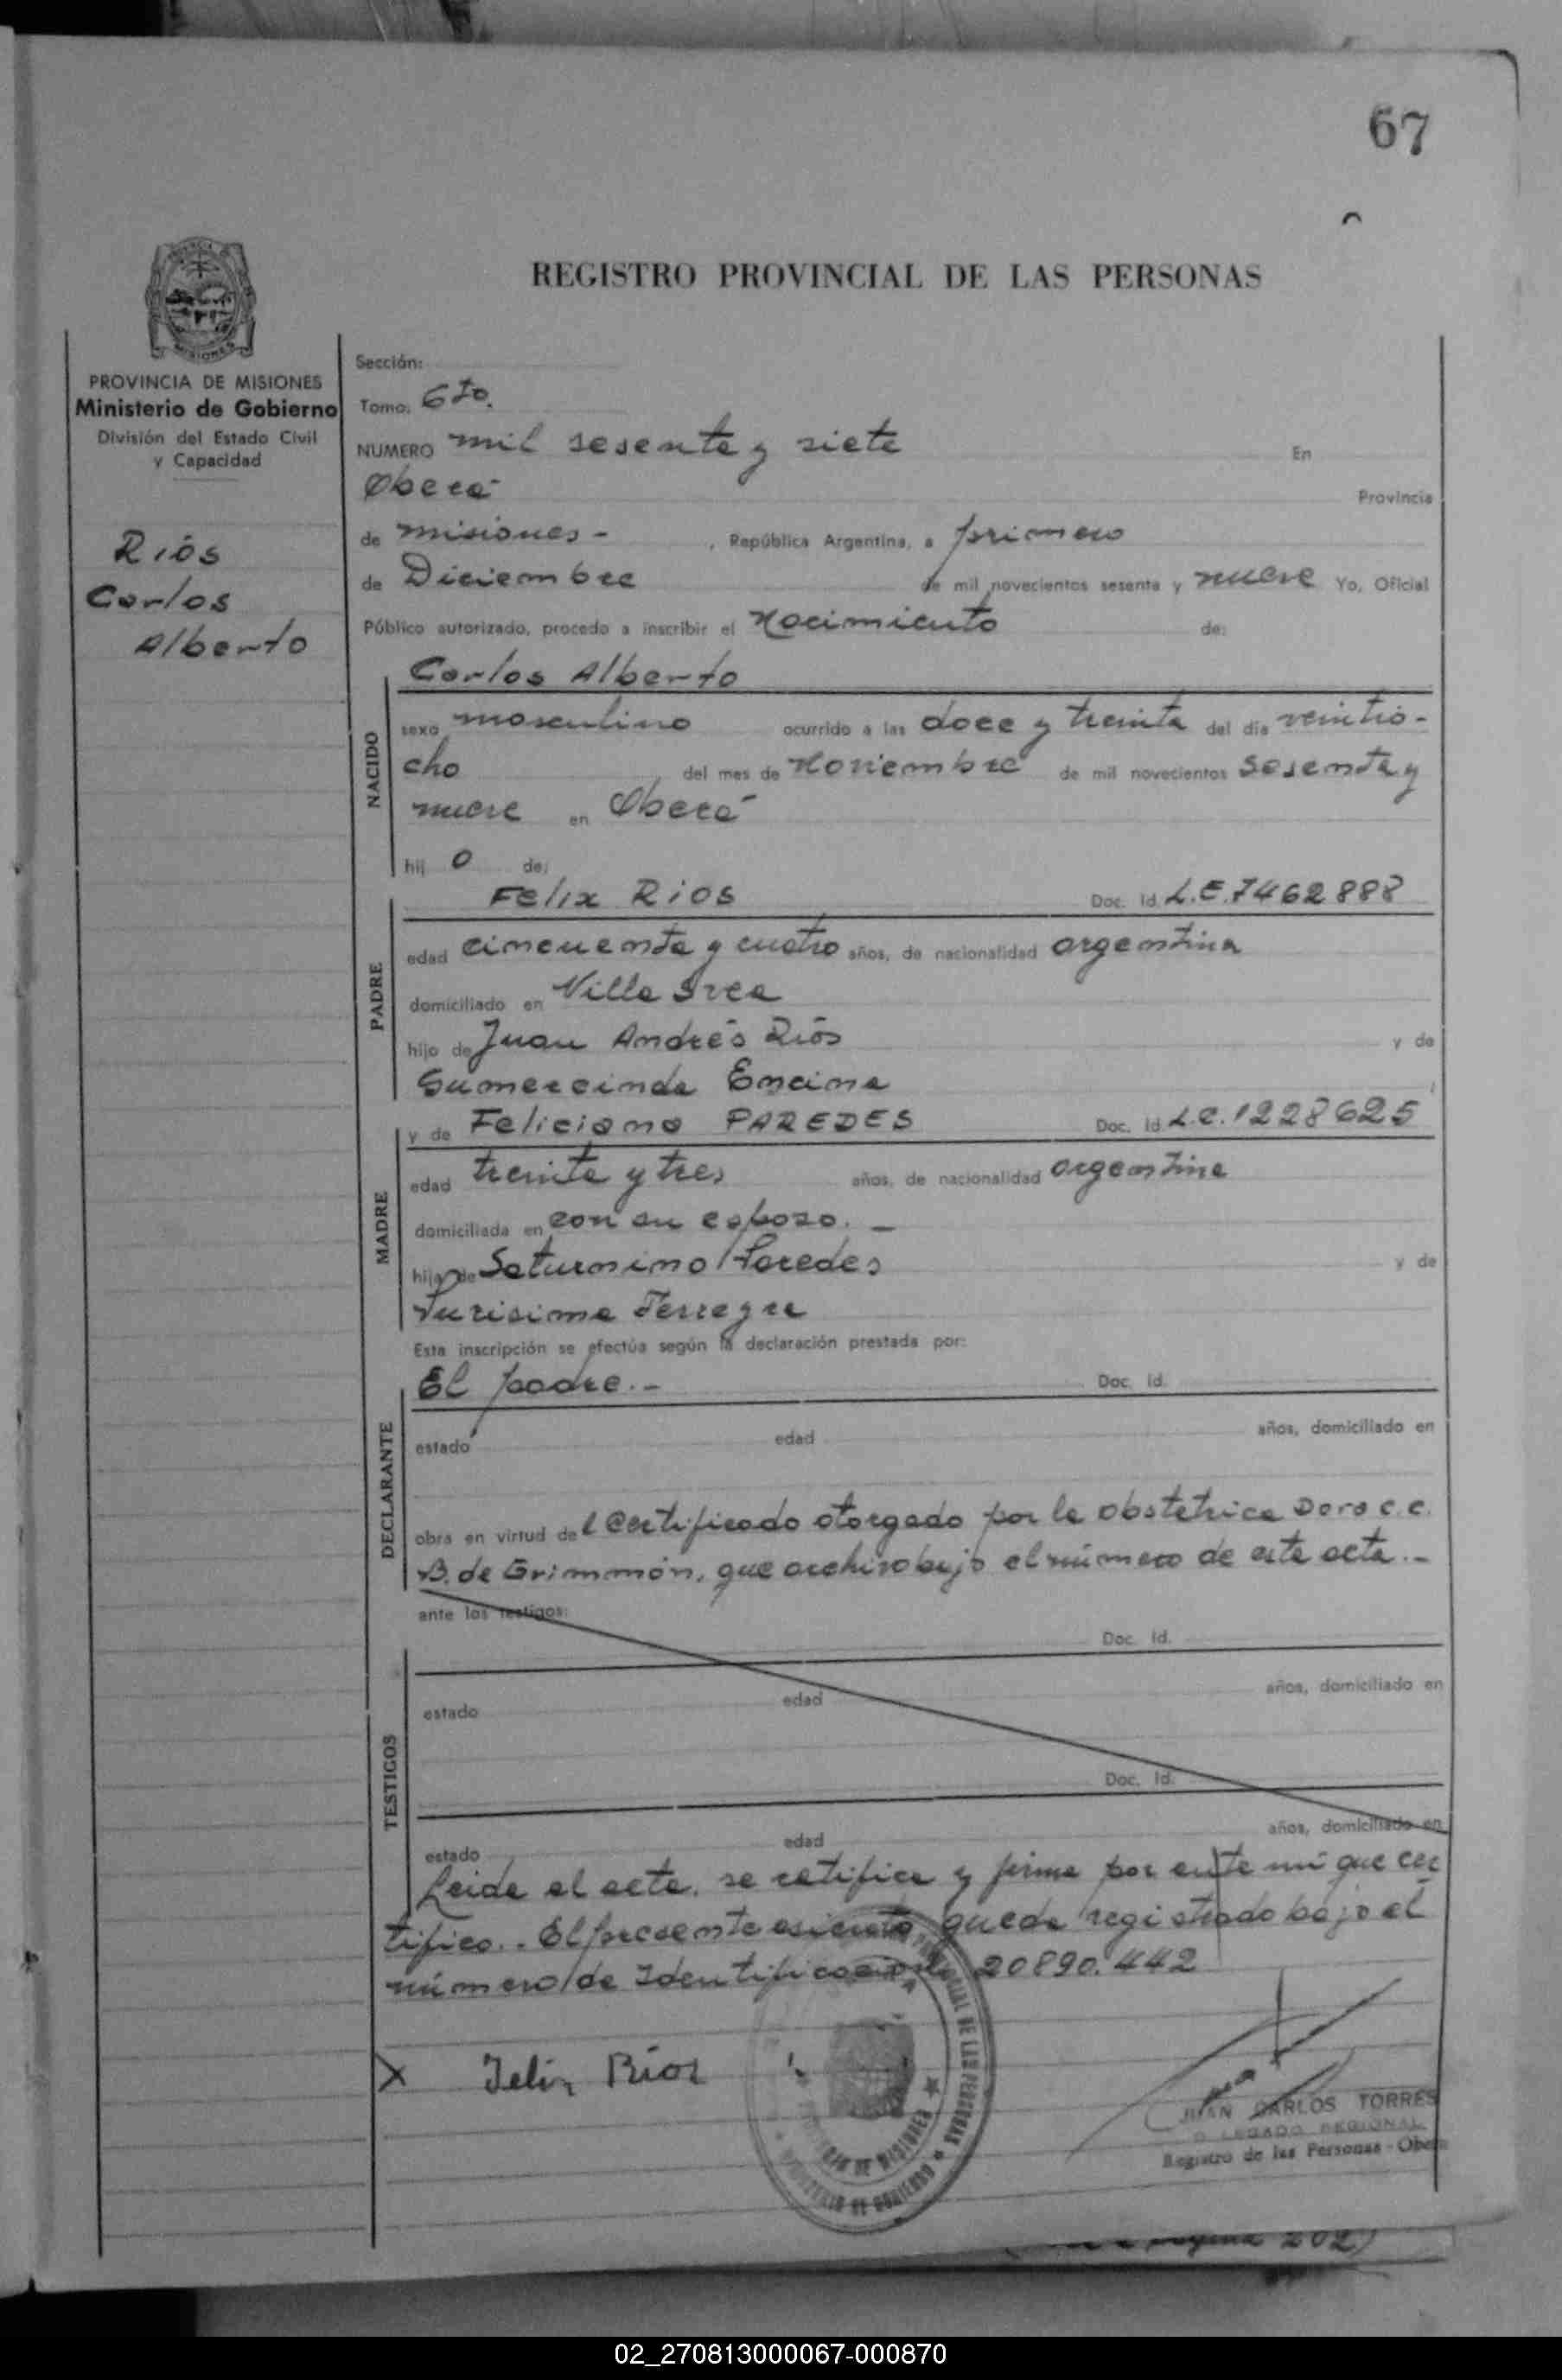 67
REGISTRO PROVINCIAL DE LAS PERSONAS
MISIONES
PROVINCIA DE MISIONES
Ministerio de Gobierno
División del Estado Civil
y Capacidad
Ríos
Carlos
Alberto
Sección:
Tomo: 6to.
NUMERO mil sesenta y siete En
Oberá Provincia
de misiones - , República Argentina, a primero
de Diciembre de mil novecientos sesenta y nueve Yo, Oficial
Público autorizado, procedo a inscribir el Nacimiento de:
Carlos Alberto
NACIDO
sexo masculino ocurrido a las doce y treinta del día veintio-
cho del mes de Noviembre de mil novecientos sesenta y
nueve en Oberá
hij o de:
Felix Rios Doc. Id. L.E. 7462888
PADRE
edad cincuenta y cuatro años, de nacionalidad argentina
domiciliado en Villa Svea
hijo de Juan Andrés Ríos y de
Gumercinda Encina
y de Feliciana PAREDES Doc. Id. L.C. 1228625
MADRE
edad treinta y tres años, de nacionalidad argentina
domiciliada en con su esposo. -
hija de Saturnino Paredes y de
Purisima Ferreyra
Esta inscripción se efectúa según la declaración prestada por:
El padre.- Doc. Id.
DECLARANTE
estado edad años, domiciliado en
obra en virtud del Certificado otorgado por la obstetrica Dora C.C.
B. de Grimmón, que archivo bajo el número de esta acta.-
ante los testigos:
Doc. Id.
TESTIGOS
estado edad años, domiciliado en
Doc. Id.
estado edad años, domiciliado en
Leida el acta, se ratifica y firma por ante mí que cer
tifico.. El presente asiento queda registrado bajo el
número de Identificación 20890.442
X Felix Ríos
PROVINCIAL DE LAS PERSONAS
PROVINCIA DE MISIONES
MINISTERIO DE GOBIERNO
JUAN CARLOS TORRES
DELEGADO REGIONAL
Registro de las Personas - Oberá
página 202)
02_270813000067-000870